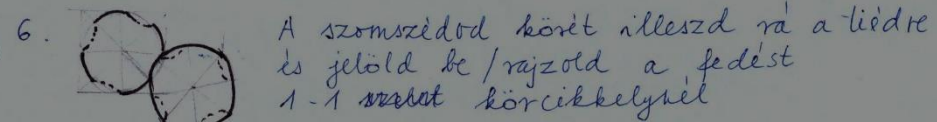 6. A szomszédod körét illeszd rá a tiédre
és jelöld be / rajzold a fedést
1-1 körcikkelynél